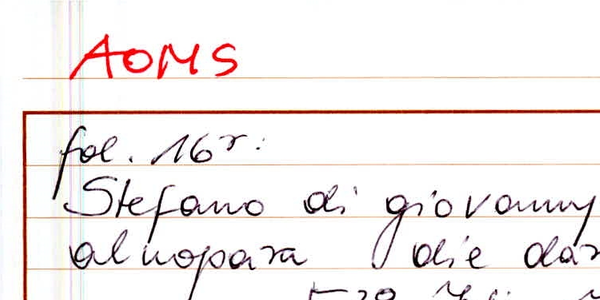 AOMS
fol. 16r:
Stefano di giovanny
al nopera die dar